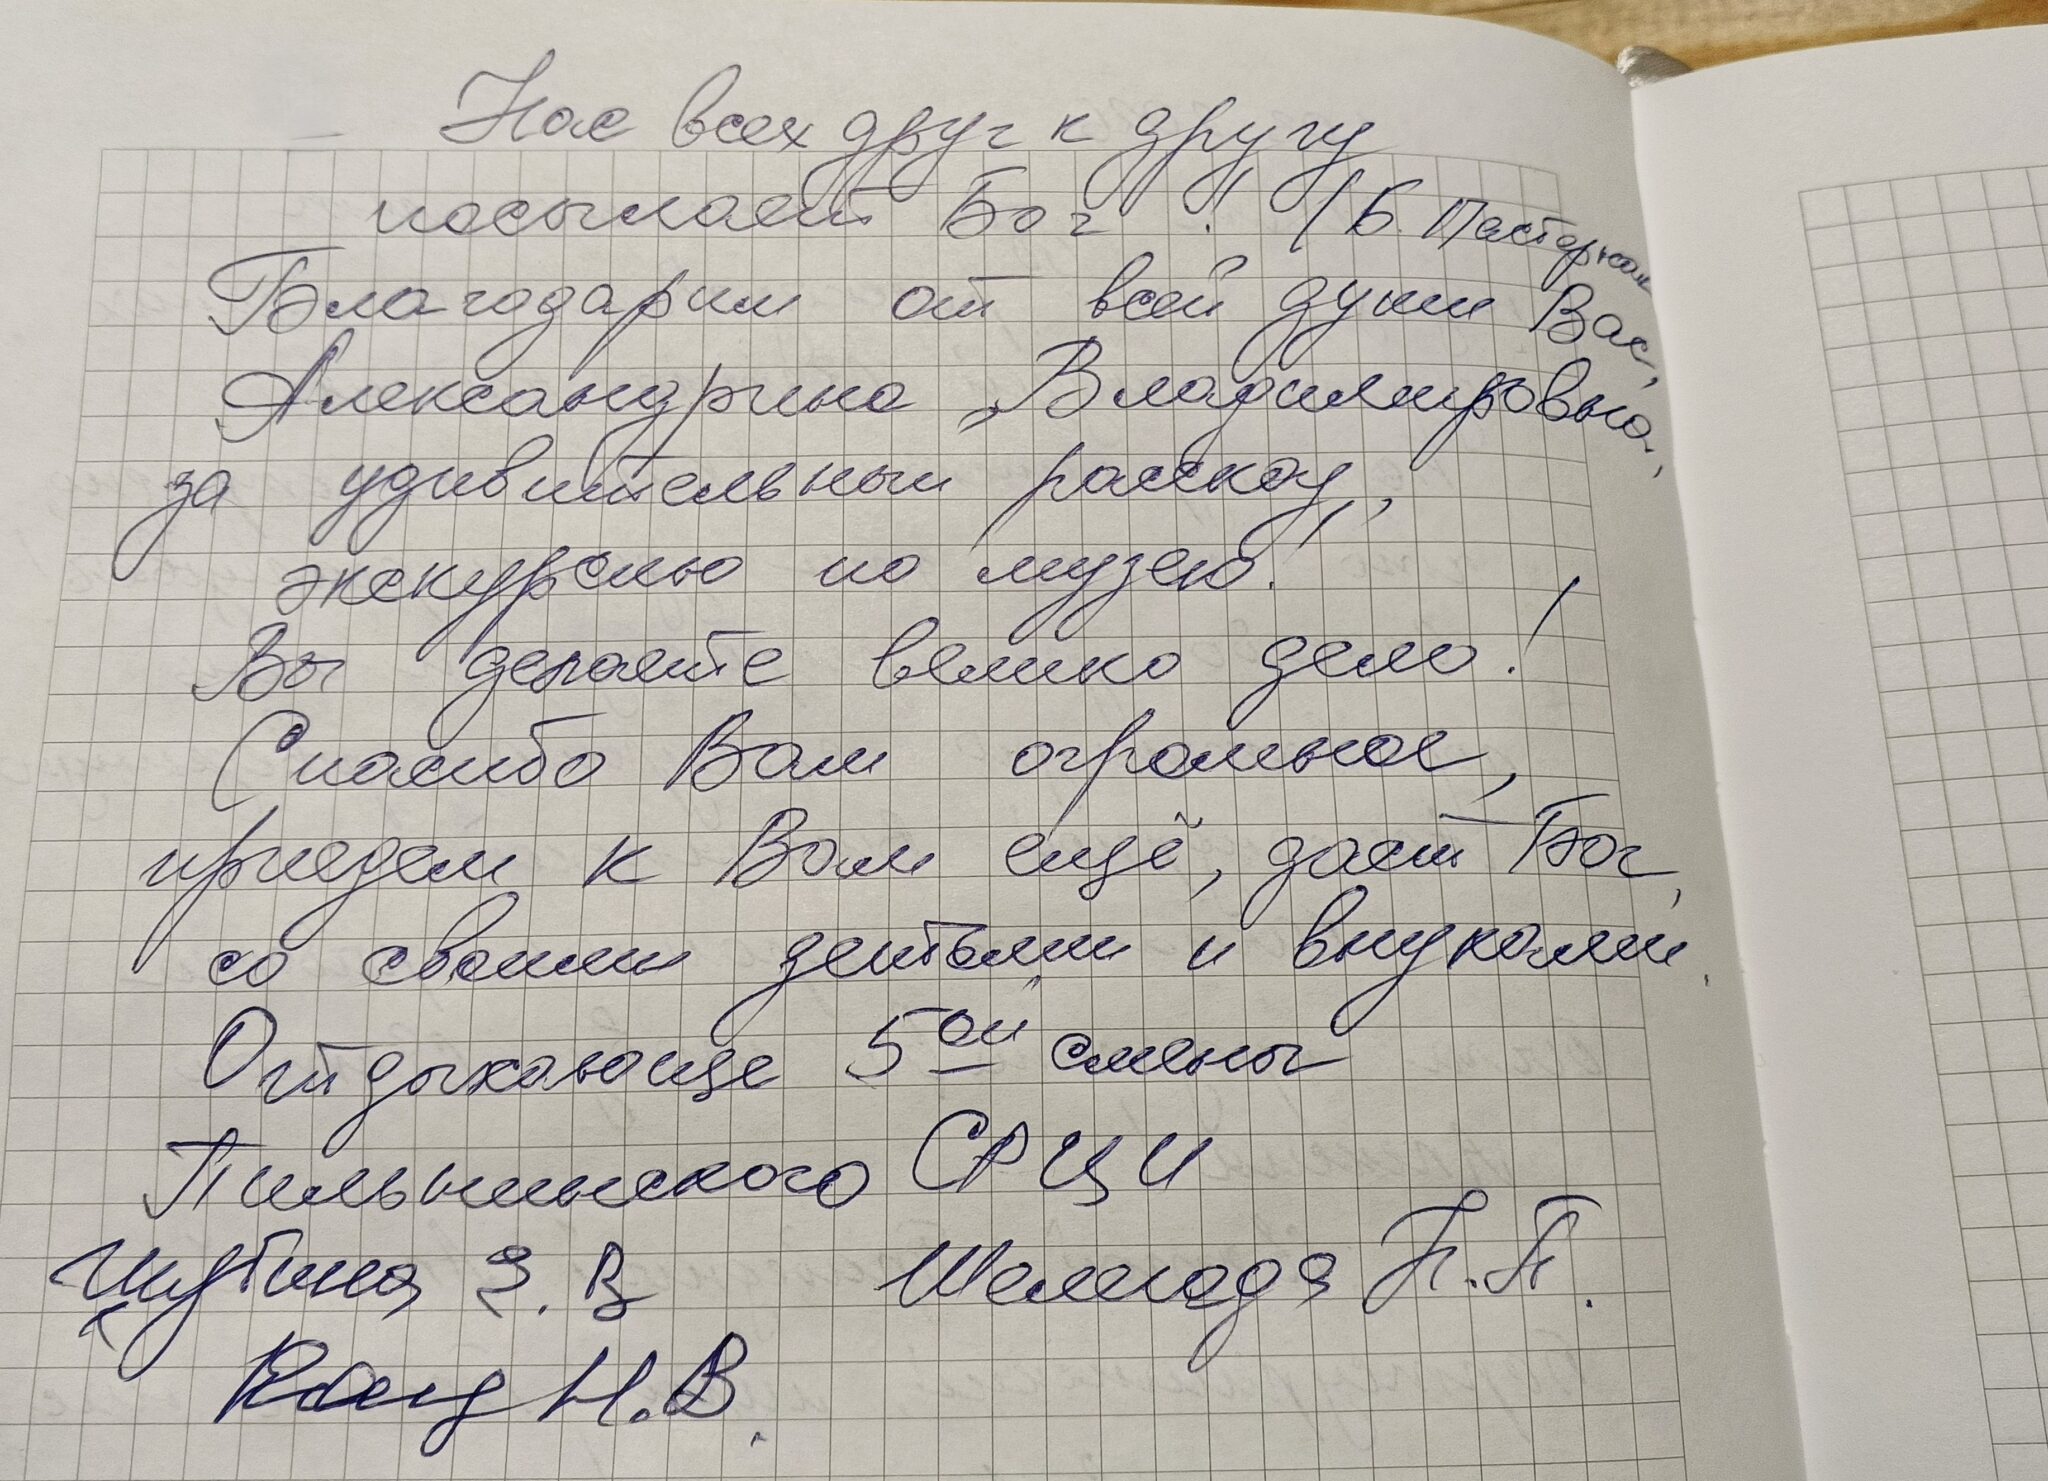 Нас всех друг к другу
посылает Бог"! (Б. Пастернак
Благодарим от всей души Вас,
Александрина Владимировна,
за удивительный рассказ,
экскурсию по музею!
Вы делаете велико дело!
Спасибо Вам огромное,
приедем к Вам ещё, даст Бог,
со своими детьми и внуками.
Отдыхающие 5ой смены
Пильнинского СРЦИ
З. В Шелегодя Н. П.
Н. В.